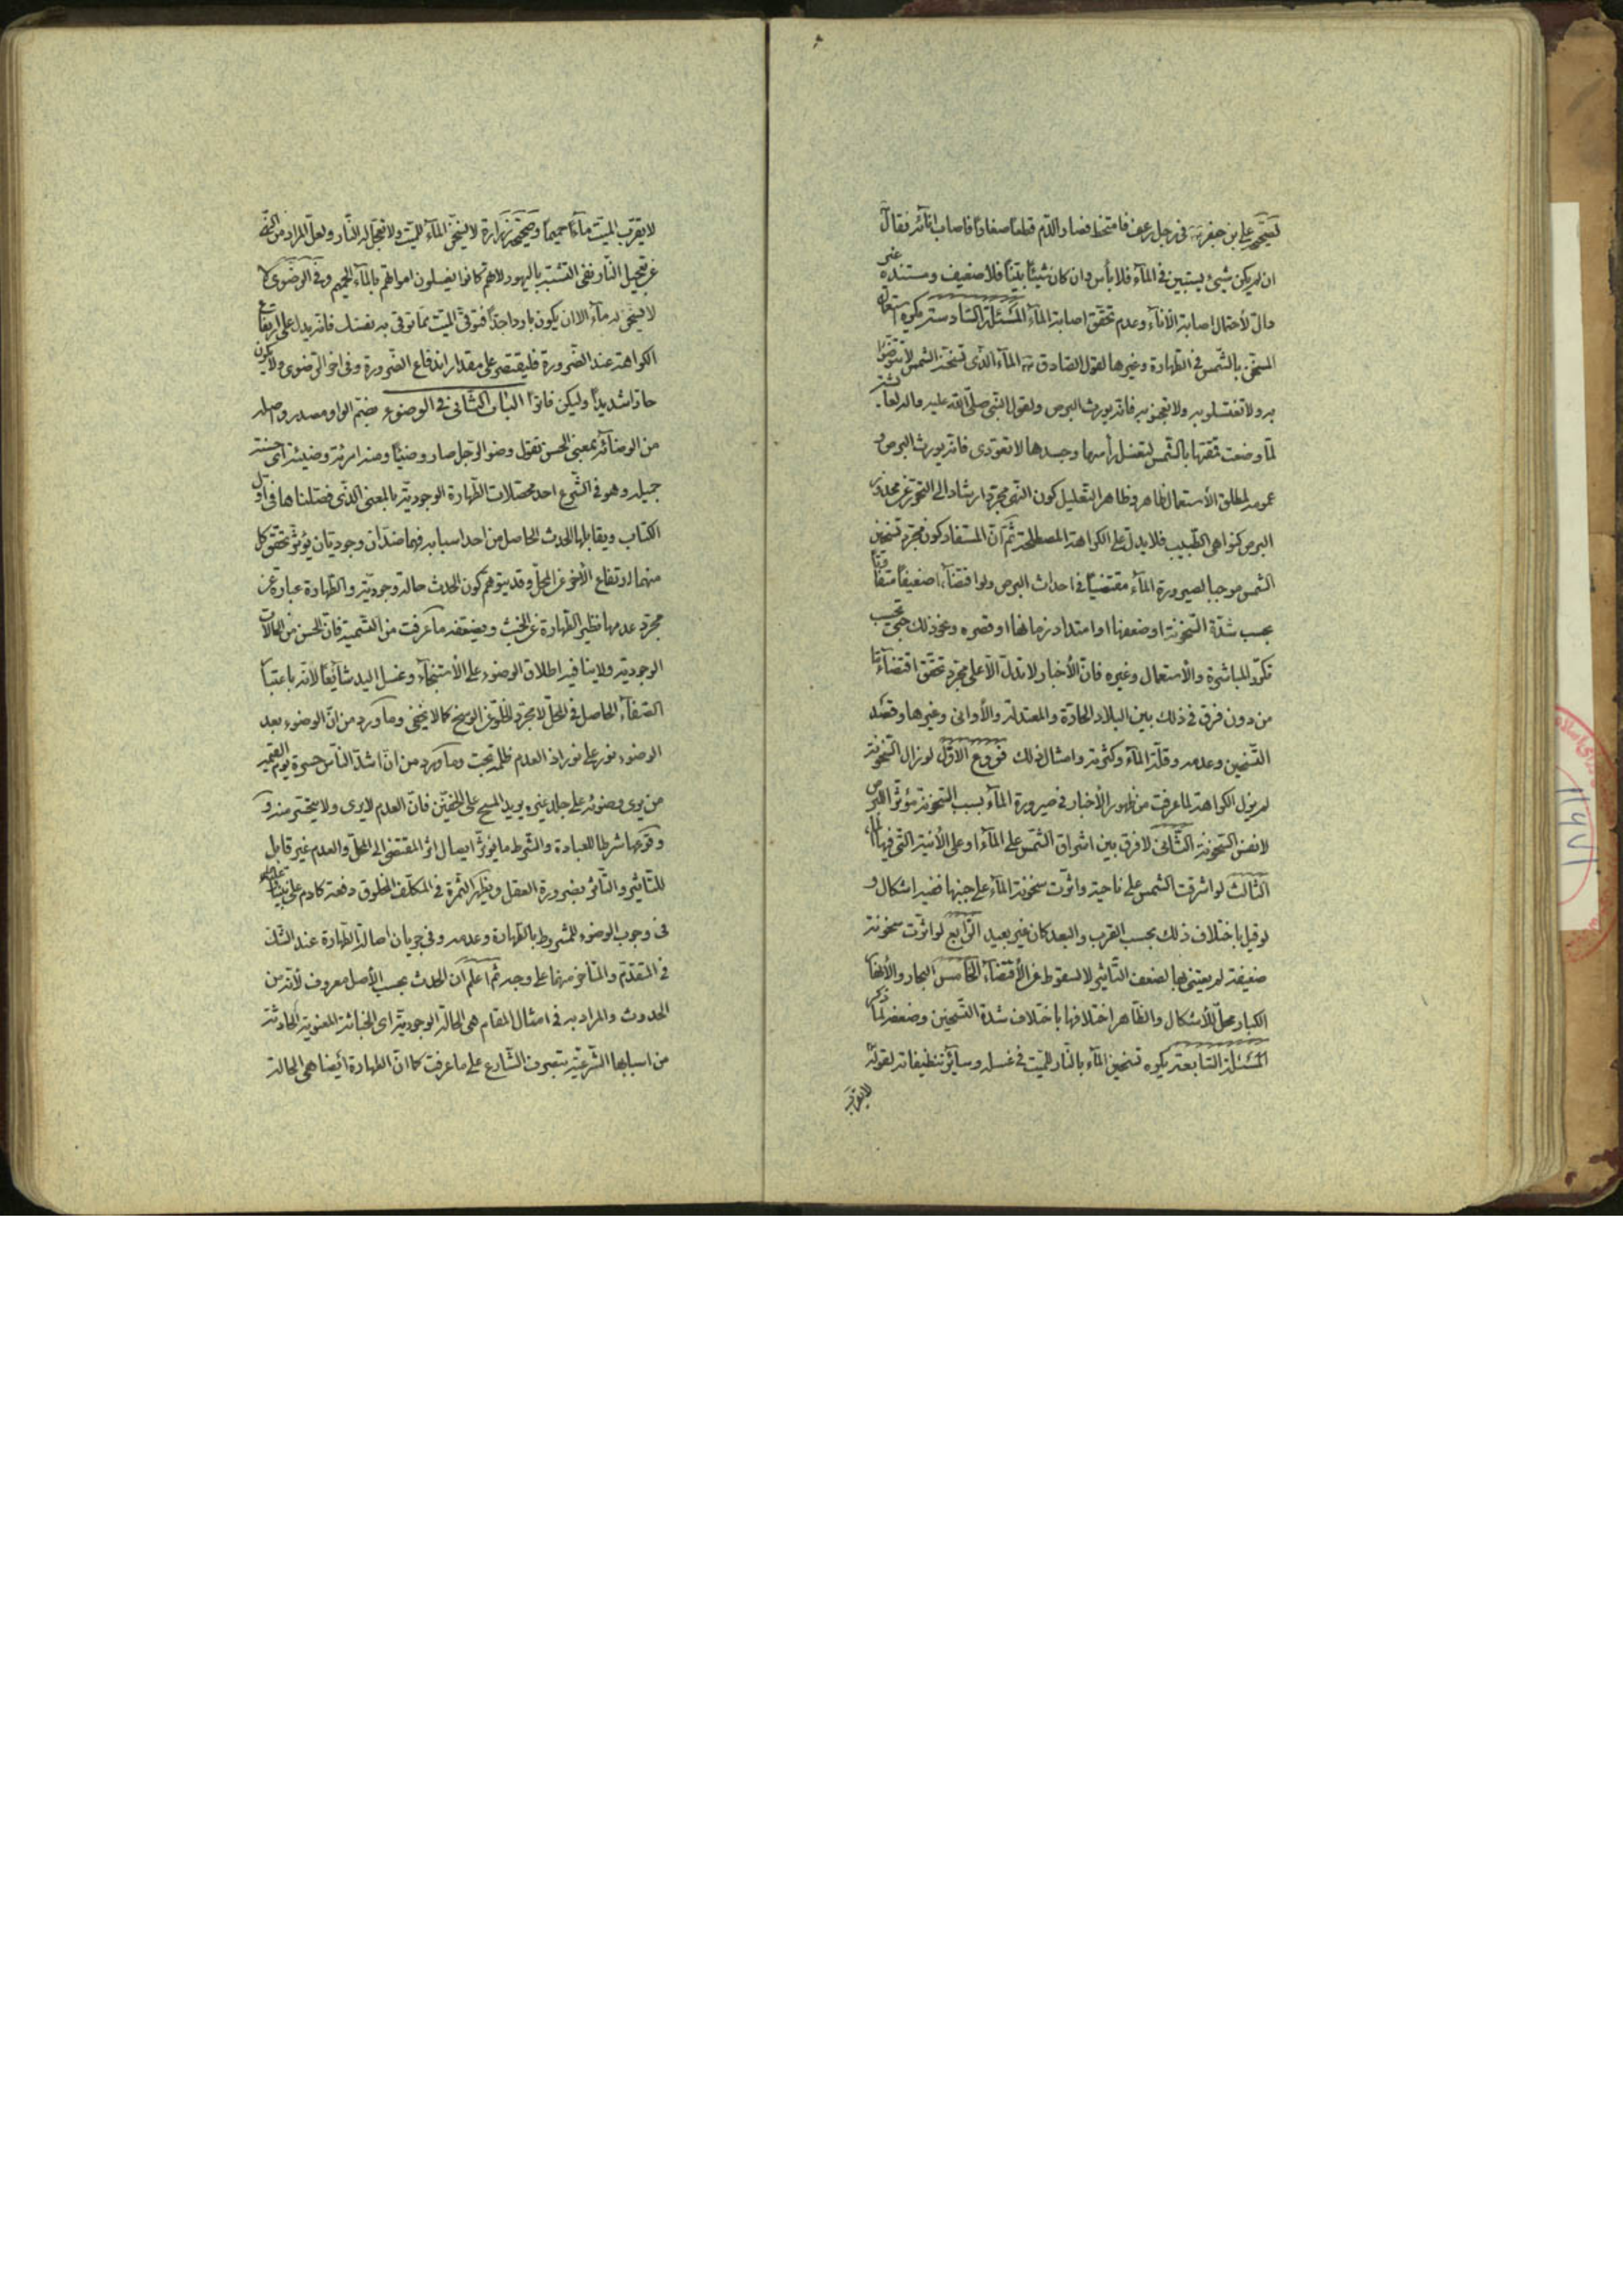 لصحيحة علي بن جعفر في رجل رعف فامتخط فصار الدم قطعا صغارا فاصاب انائه فقال
ان لم يكن شيئ يستبين في المآء فلا بأس وان كان شيئا بينا فلا ضعيف ومستنده غير
دال لأحتمال اصابة الأناء وعدم تحقق اصابة المآء المسئلة السادسة يكره استعمال
المسخن بالشمس في الطهارة وغيرها لقول الصادق المآء الذى تسخنه الشمس لا تتوضؤا
به ولا تغتسلو به ولا تعجنو به فانه يورث البرص ولقول النبى صلى الله عليه واله لعايشة
لما وضعت قمقمتها بالشمس لتغسل رأسها وجسدها لا تعودى فانه يورث البرص و
عمومه لمطلق الأستعمال ظاهر وظاهر التعليل كون النهى مجرد ارشاد الى التحرز عن محذور
البرص كنواهى الطبيب فلا يدل على الكراهة المصطلحة ثم ان المستفاد كون مجرد تسخين
الشمس موجبا لصيرورة المآء مقتضيا في احداث البرص ولو اقتضآء ضعيفا متفاوتا
بحسب شدة السخونة او ضعفها او امتداد زمانها او قصره ونحو ذلك حتى بحسب
تكرر المباشرة والأستعمال وغيره فان الأخبار لا تدل الا على مجرد تحقق اقتضاء ما
من دون فرق في ذلك بين البلاد الحارة والمعتدلة والأوانى وغيرها وقصد
التسخين وعدمه وقلة المآء وكثرته وامثال ذلك فروع الاول لو زال السخونة
لم يزل الكراهة لما عرفت من ظهور الأخبار في صيرورة المآء بسبب السخونة مؤثر البرص
لا نفس السخونة الثانى لا فرق بين اشراق الشمس على المآء او على الأنية التى فيها المآء
الثالث لو اشرقت الشمس على ناحية واثرت سخونة المآء على جنبها ففيه اشكال و
لو قيل باختلاف ذلك بحسب القرب والبعد كان غير بعيد الرابع لو اثرت سخونة
ضعيفة لم يعتنى بها لضعف التأثير لا لسقوط عن الأقتضآء الخامس البحار والأنهار
الكبار محل الأشكال والظاهر اختلافها باختلاف شدة التسخين وضعفه لما ذكر
المسئلة السابعة يكره تسخين المآء بالنار للميت في غسله وسائر تنظيفاته لقوله
لا يقرب
لا يقرب الميت مآءا حميما وصحيحة زرارة لا يسخن المآء للميت ولا تعجل له النار ولعل المراد من النهى
عن تعجيل النار نفى التشبه باليهود لانهم كانوا يغسلون امواتهم بالمآء الحميم وفي الرضوى
لا يسخن له مآء الا ان يكون باردا جدا فتوقى الميت مما توقى به نفسك فانه يدل على ارتفاع
الكراهة عند الضرورة فليقتصر على مقدار اندفاع الضرورة وفى اخر الرضوى ولا يكون
حارا شديدا وليكن فاترا الباب الثانى في الوضوء بضم الواو مصدر واصله
من الوضائة بمعنى الحسن تقول وضوء الرجل صار وضيئا ومنه امرئة وضيئة اى حسنة
جميلة وهو في الشرع احد محصلات الطهارة الوجودية بالمعنى الذى فصلناها في اول
الكتاب ويقابلها الحدث الحاصل من احد اسبابه فهما ضدان وجوديان يؤثر تحقق كل
منهما ارتفاع الأخر عن المحل وقد يتوهم كون الحدث حالة وجودية والطهارة عبارة عن
مجرد عدمها نظير الطهارة عن الخبث ويضعفه ما عرفت من التسمية فان الحسن من الحالات
الوجودية ولا ينافيه اطلاق الوضوء على الأستنجآء وغسل اليد شائعا لانه باعتبار
الصفآء الحاصل في المحل لا مجرد الخلو عن الوسخ كما لا يخفى وما ورد من ان الوضوء بعد
الوضوء نور على نور اذ العدم ظلمة تحت وما ورد من ان اشد الناس حسرة يوم القيمة
من يرى وضوئه على جلد غيره يريد المسح على الخفين فان العدم لا يرى ولا يتحسر منه و
وقوعها شرطا للعبادة والشرط ما يؤثر ايصال اثر المقتضى الى المحل والعدم غير قابل
للتأثير والتأثر بضرورة العقل ويظهر الثمرة في المكلف المخلوق دفعة كادم على نبينا
في وجوب الوضوء للمشروط بالطهارة وعدمه وفي جريان اصالة الطهارة عند الشك
في المتقدم والمتأخر منهما على وجه ثم اعلم ان الحدث بحسب الأصل معروف لانه من
الحدوث والمراد به في امثال المقام هى الحالة الوجودية اى الخباثة المعنوية الحادثة
من اسبابها الشرعية بتصرف الشارع على ما عرفت كما ان الطهارة أيضا هى الحالة